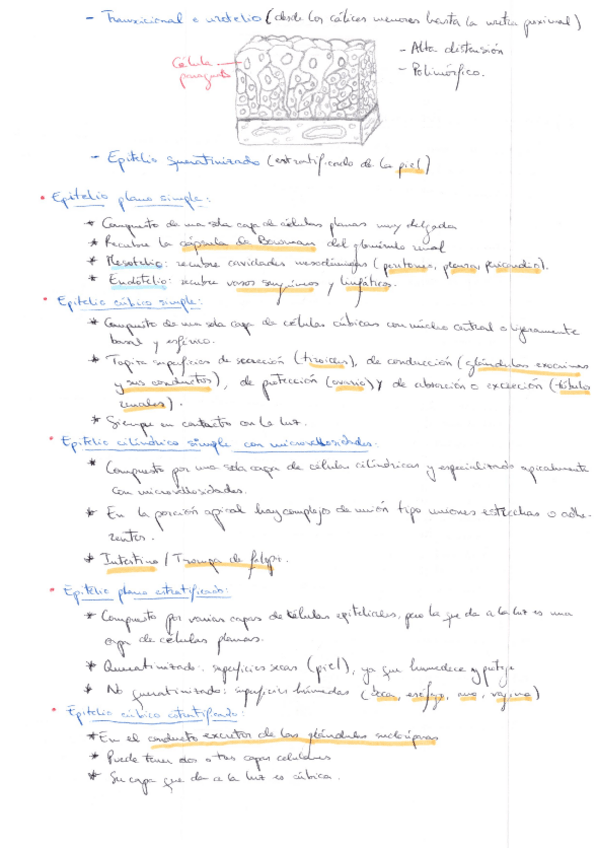 - Transicional o urotelio (desde los cálices menores hasta la uretra proximal)
Célula
paraguas
- Alta distensión
- Polimórfico.
- Epitelio queratinizado (estratificado de la piel)
• Epitelio plano simple:
* Compuesto de una sola capa de células planas muy delgadas
* Recubre la cápsula de Bowman del glomérulo renal
* Mesotelio: recubre cavidades mesodérmicas (peritoneo, pleura, pericardio).
* Endotelio: recubre vasos sanguíneos y linfáticos.
• Epitelio cúbico simple:
* Compuesto de una sola capa de células cúbicas con núcleo central o ligeramente
basal y esférico.
* Tapiza superficies de secreción (tiroides), de conducción (glándulas exocrinas
y sus conductos), de protección (ovario) y de absorción o excreción (túbulos
renales).
* Siempre en contacto con la luz.
• Epitelio cilíndrico simple con microvellosidades:
* Compuesto por una sola capa de células cilíndricas y especializado apicalmente
con microvellosidades.
* En la porción apical hay complejos de unión tipo uniones estrechas o adhe-
rentes.
* Intestino / Trompa de falopio.
• Epitelio plano estratificado:
* Compuesto por varias capas de células epiteliales, pero la que da a la luz es una
capa de células planas.
* Queratinizado: superficies secas (piel), ya que humedece y protege
* No queratinizado: superficies húmedas (boca, esófago, ano, vagina)
• Epitelio cúbico estratificado:
* En el conducto excretor de las glándulas sudoríparas
* Puede tener dos o tres capas celulares
* Su capa que da a la luz es cúbica.